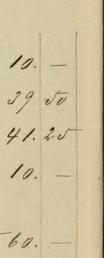 10. —
39. 50
41. 25
10. —
60. —